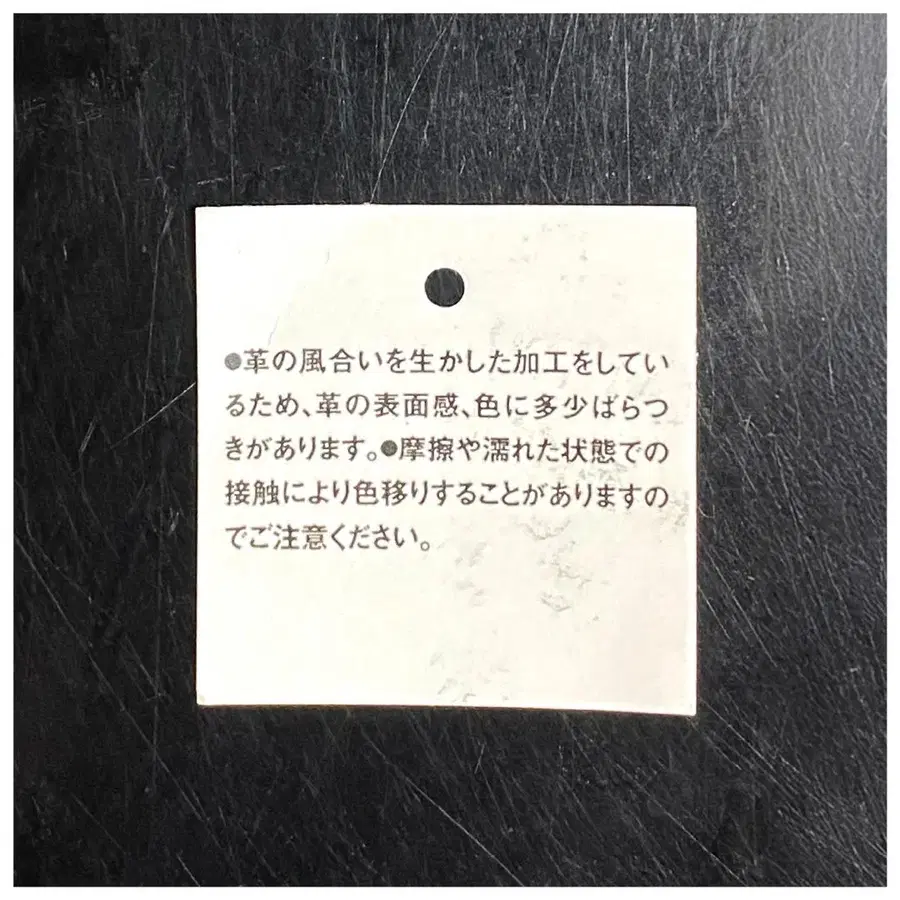 ●革の風合いを生かした加工をしてい
るため、革の表面感、色に多少ばらつ
きがあります。●摩擦や濡れた状態での
接触により色移りすることがありますの
でご注意ください。